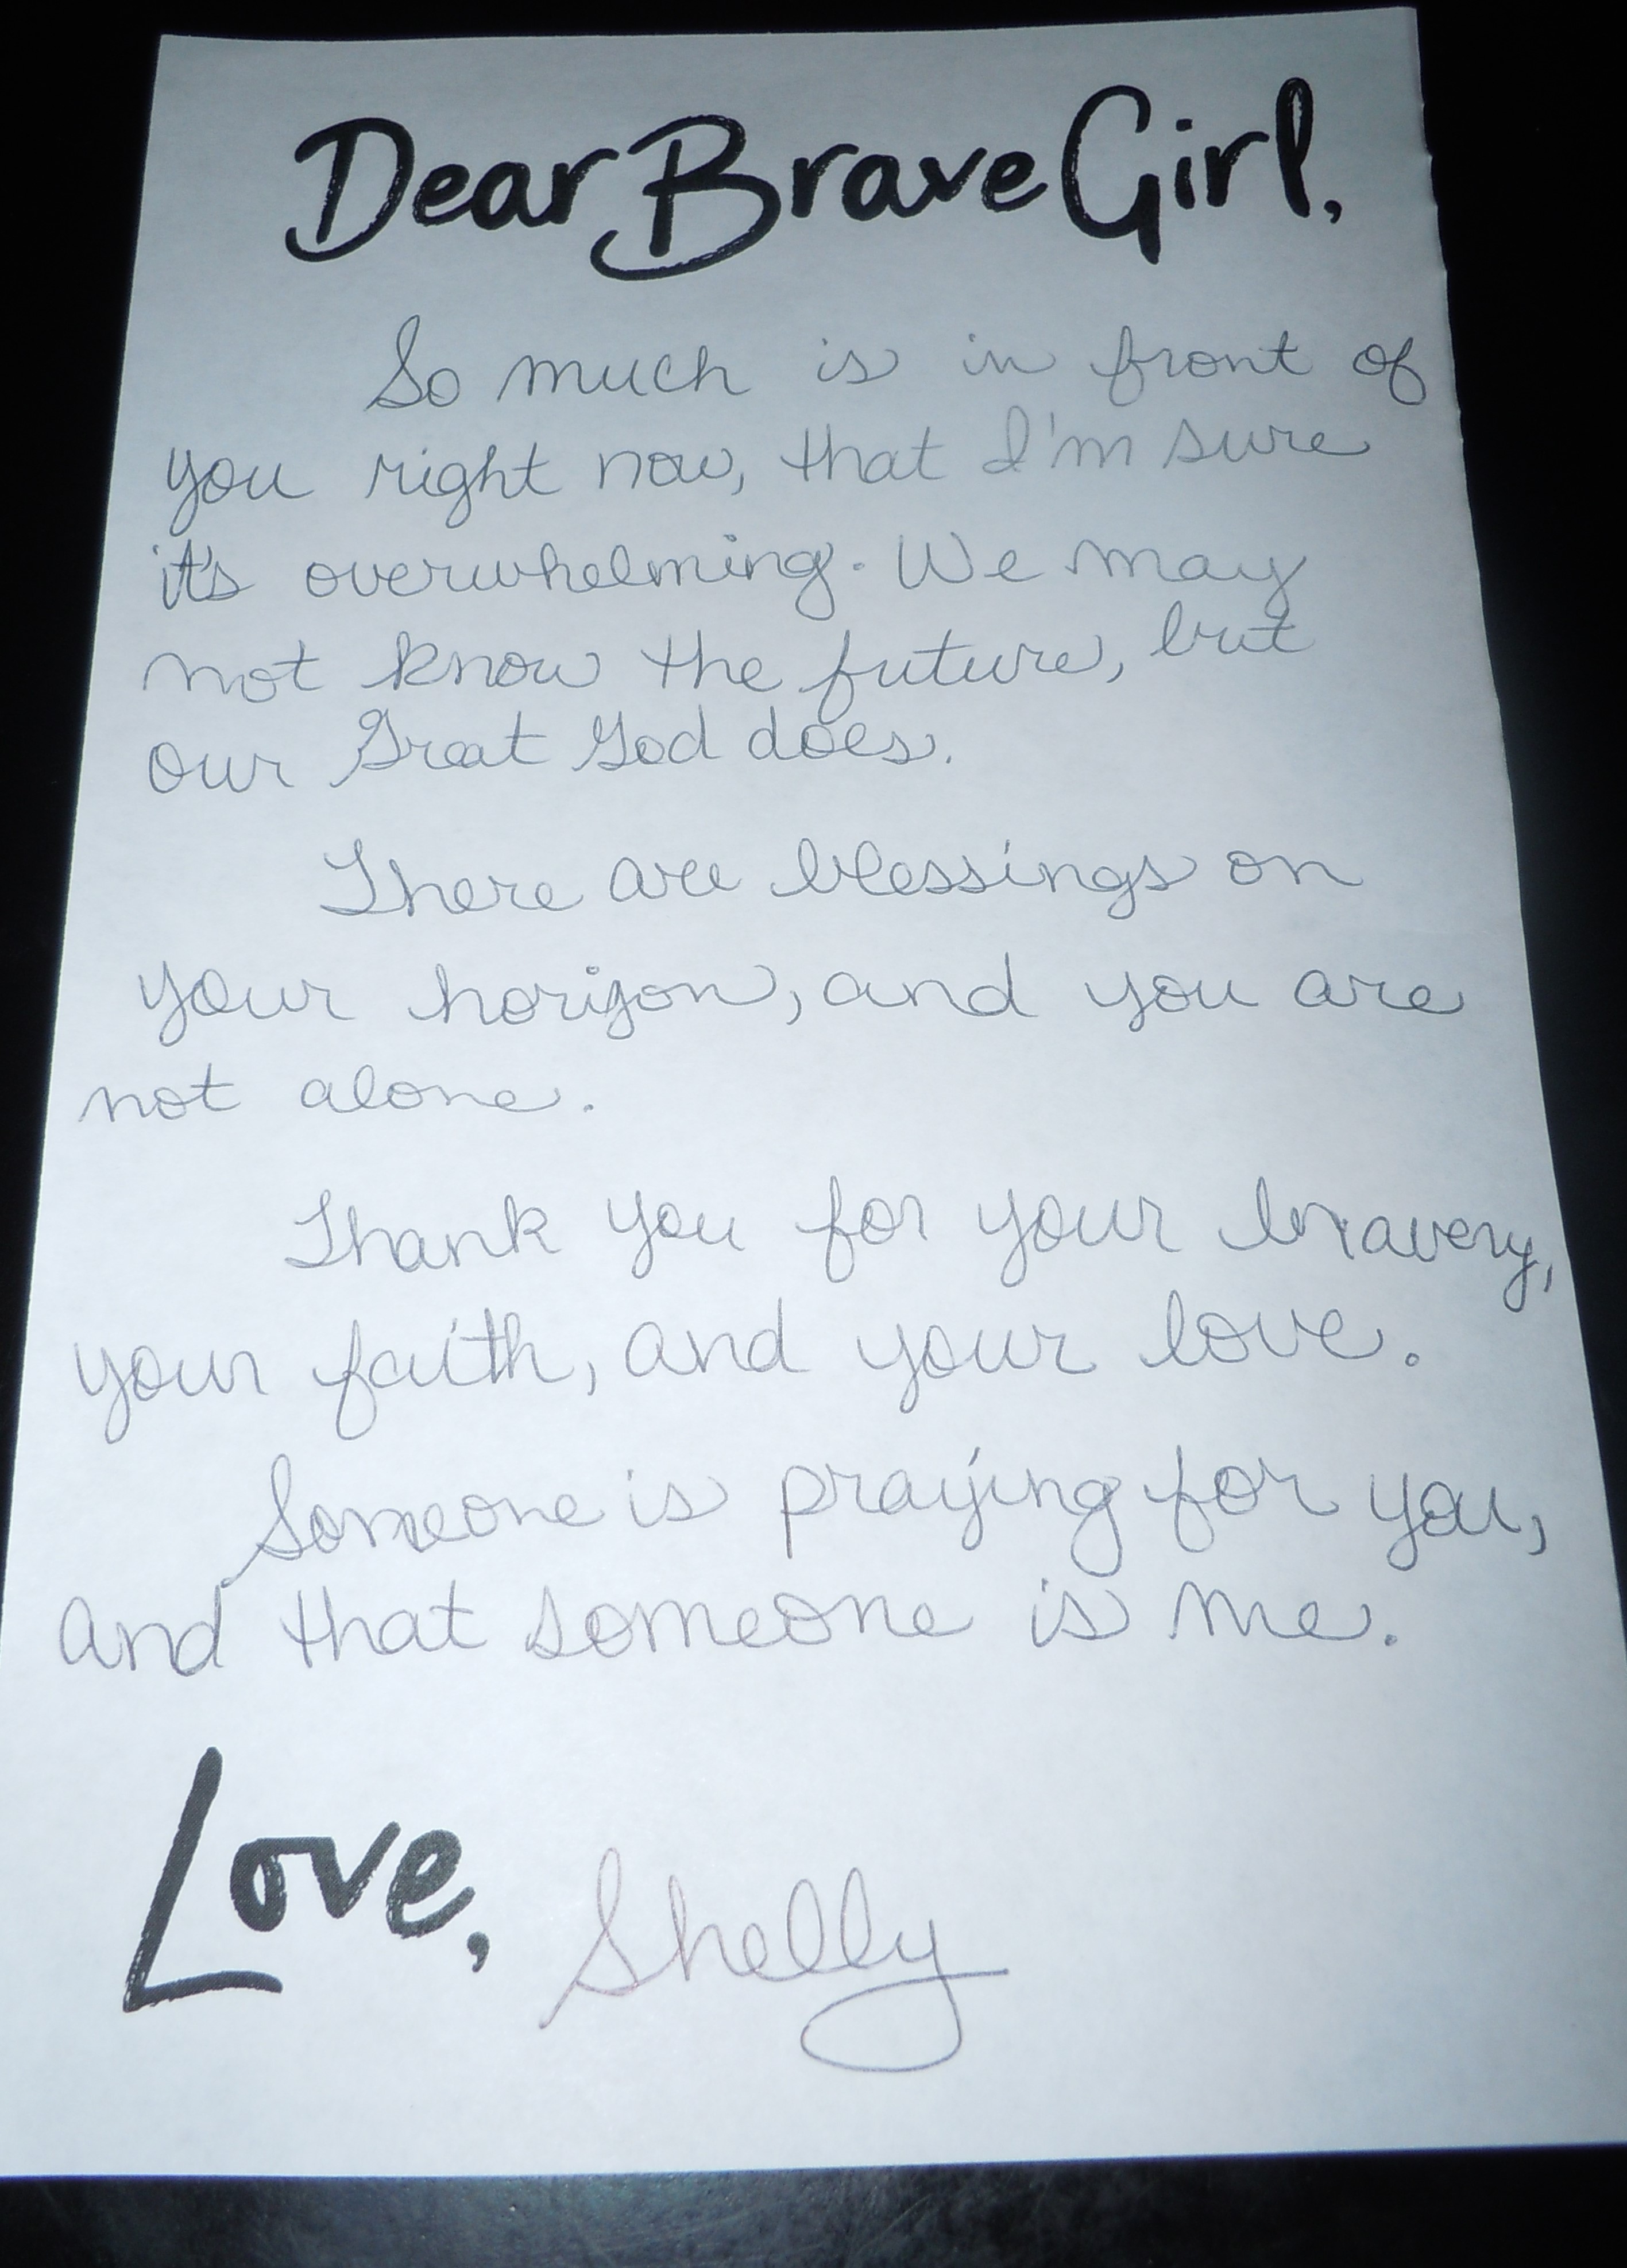 Dear Brave Girl,
So much is in front of
you right now, that I'm sure
it's overwhelming. We may
not know the future, but
our Great God does.
There are blessings on
your horizon, and you are
not alone.
Thank you for your bravery,
your faith, and your love.
Someone is praying for you,
and that someone is me.
Love, Shelly